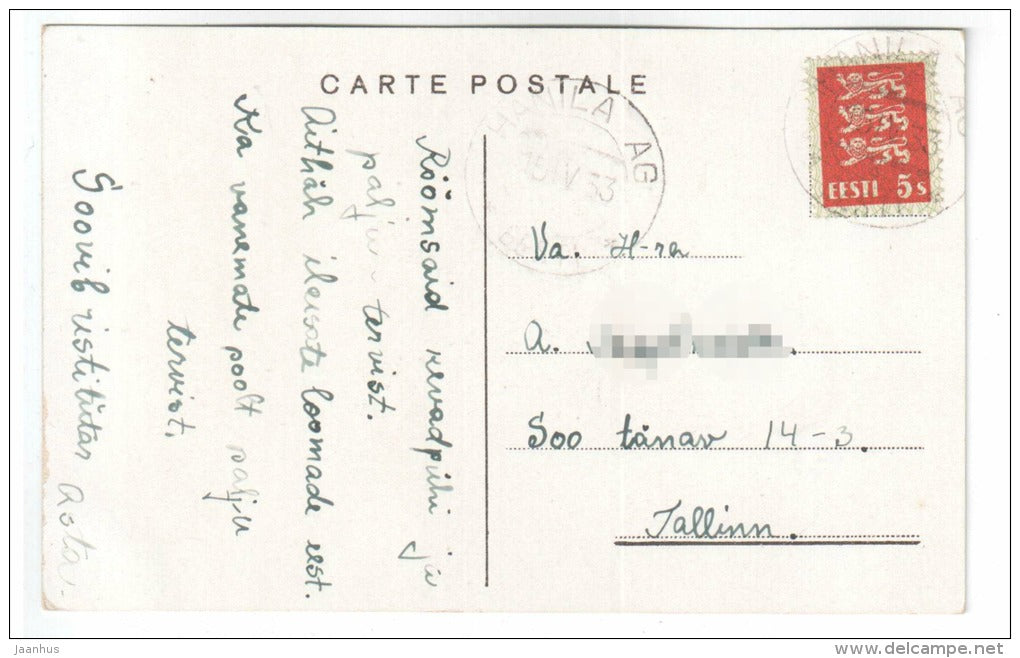 CARTE POSTALE
HANILA AG
15 IV 33
EESTI
EESTI 5s
Rõõmsaid kevadpühi ja
palju tervist.
Aithäh ilusate loomade eest.
Ka vanemate poolt palju
tervist,
Soovib ristitütar Asta.
Va. H-ra
A.
Soo tänav 14-3.
Tallinn.
jaanhus
www.delcampe.net